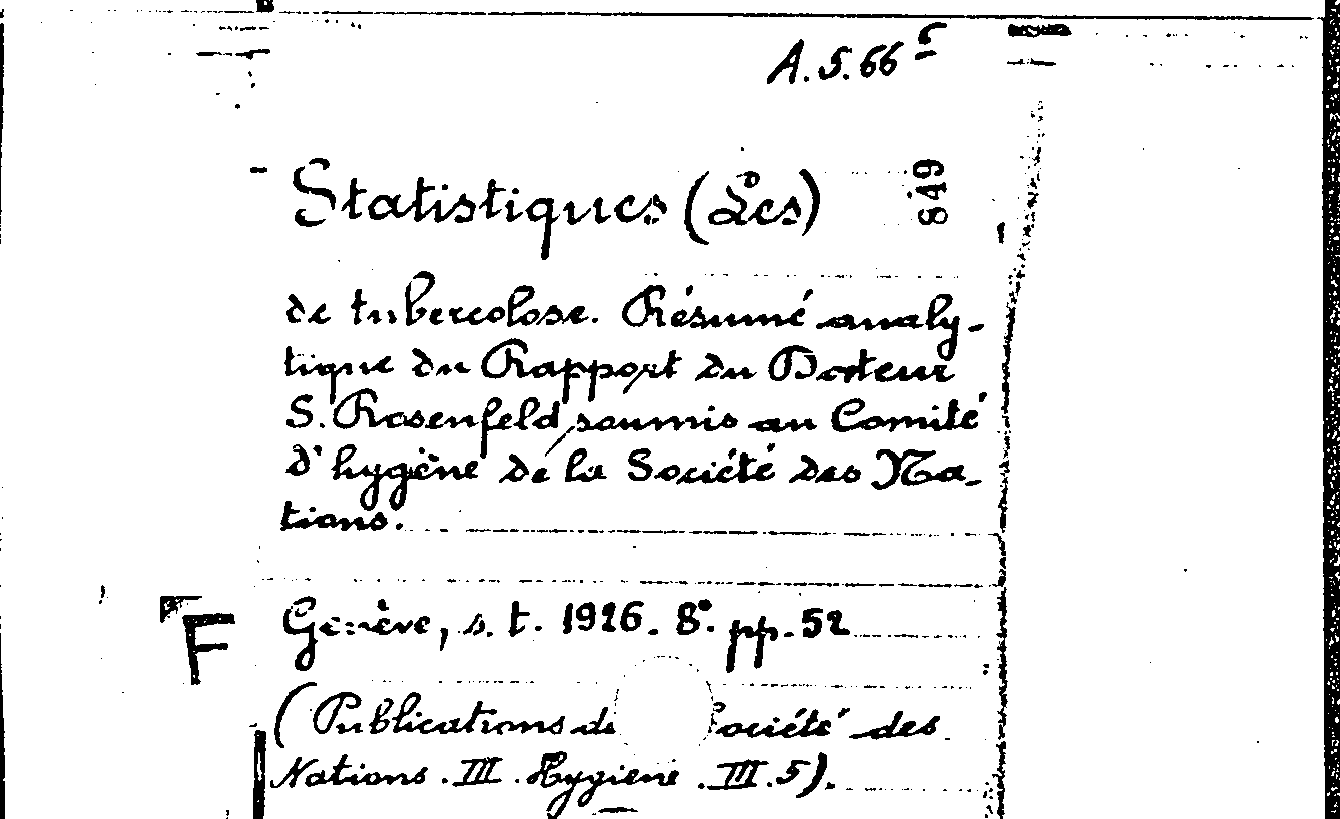 A.5.66 c
849
Statistiques (Les)
de tubercolose. Résumé analy-
tique du Rapport du Docteur
S. Rosenfeld, soumis au Comité
d'hygène de la Société des Na-
tions.
F
Genève, s. t. 1926. 8°. pp. 52
(Publications de Société des
Nations. III. Hygiene. III. 5).